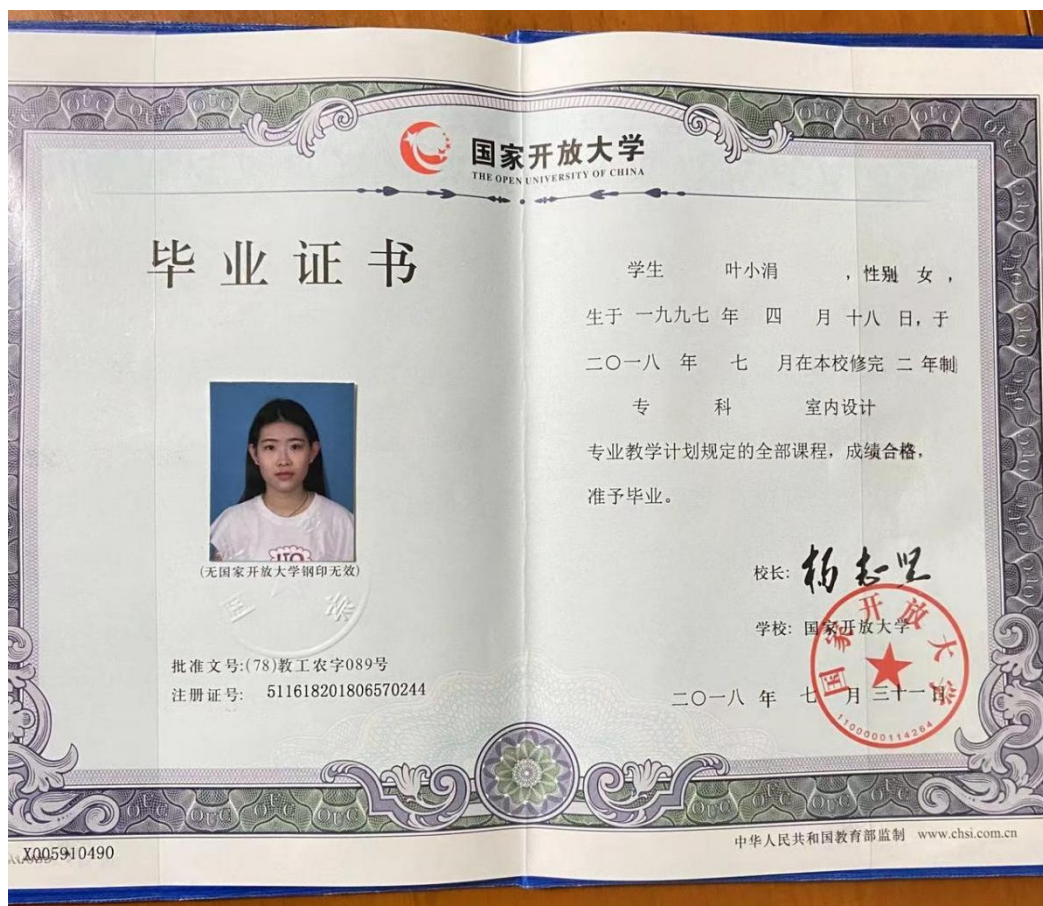 国家开放大学
THE OPEN UNIVERSITY OF CHINA
毕业证书
(无国家开放大学钢印无效)
批准文号:(78)教工农字089号
注册证号: 511618201806570244
X005910490
学生 叶小涓 ，性别 女 ，
生于 一九九七 年 四 月 十八 日，于
二〇一八 年 七 月在本校修完 二 年制
专 科 室内设计
专业教学计划规定的全部课程，成绩合格，
准予毕业。
校长: 杨志坚
学校: 国家开放大学
二〇一八 年 七 月 三十一 日
国家开放大学
1100000114264
中华人民共和国教育部监制 www.chsi.com.cn